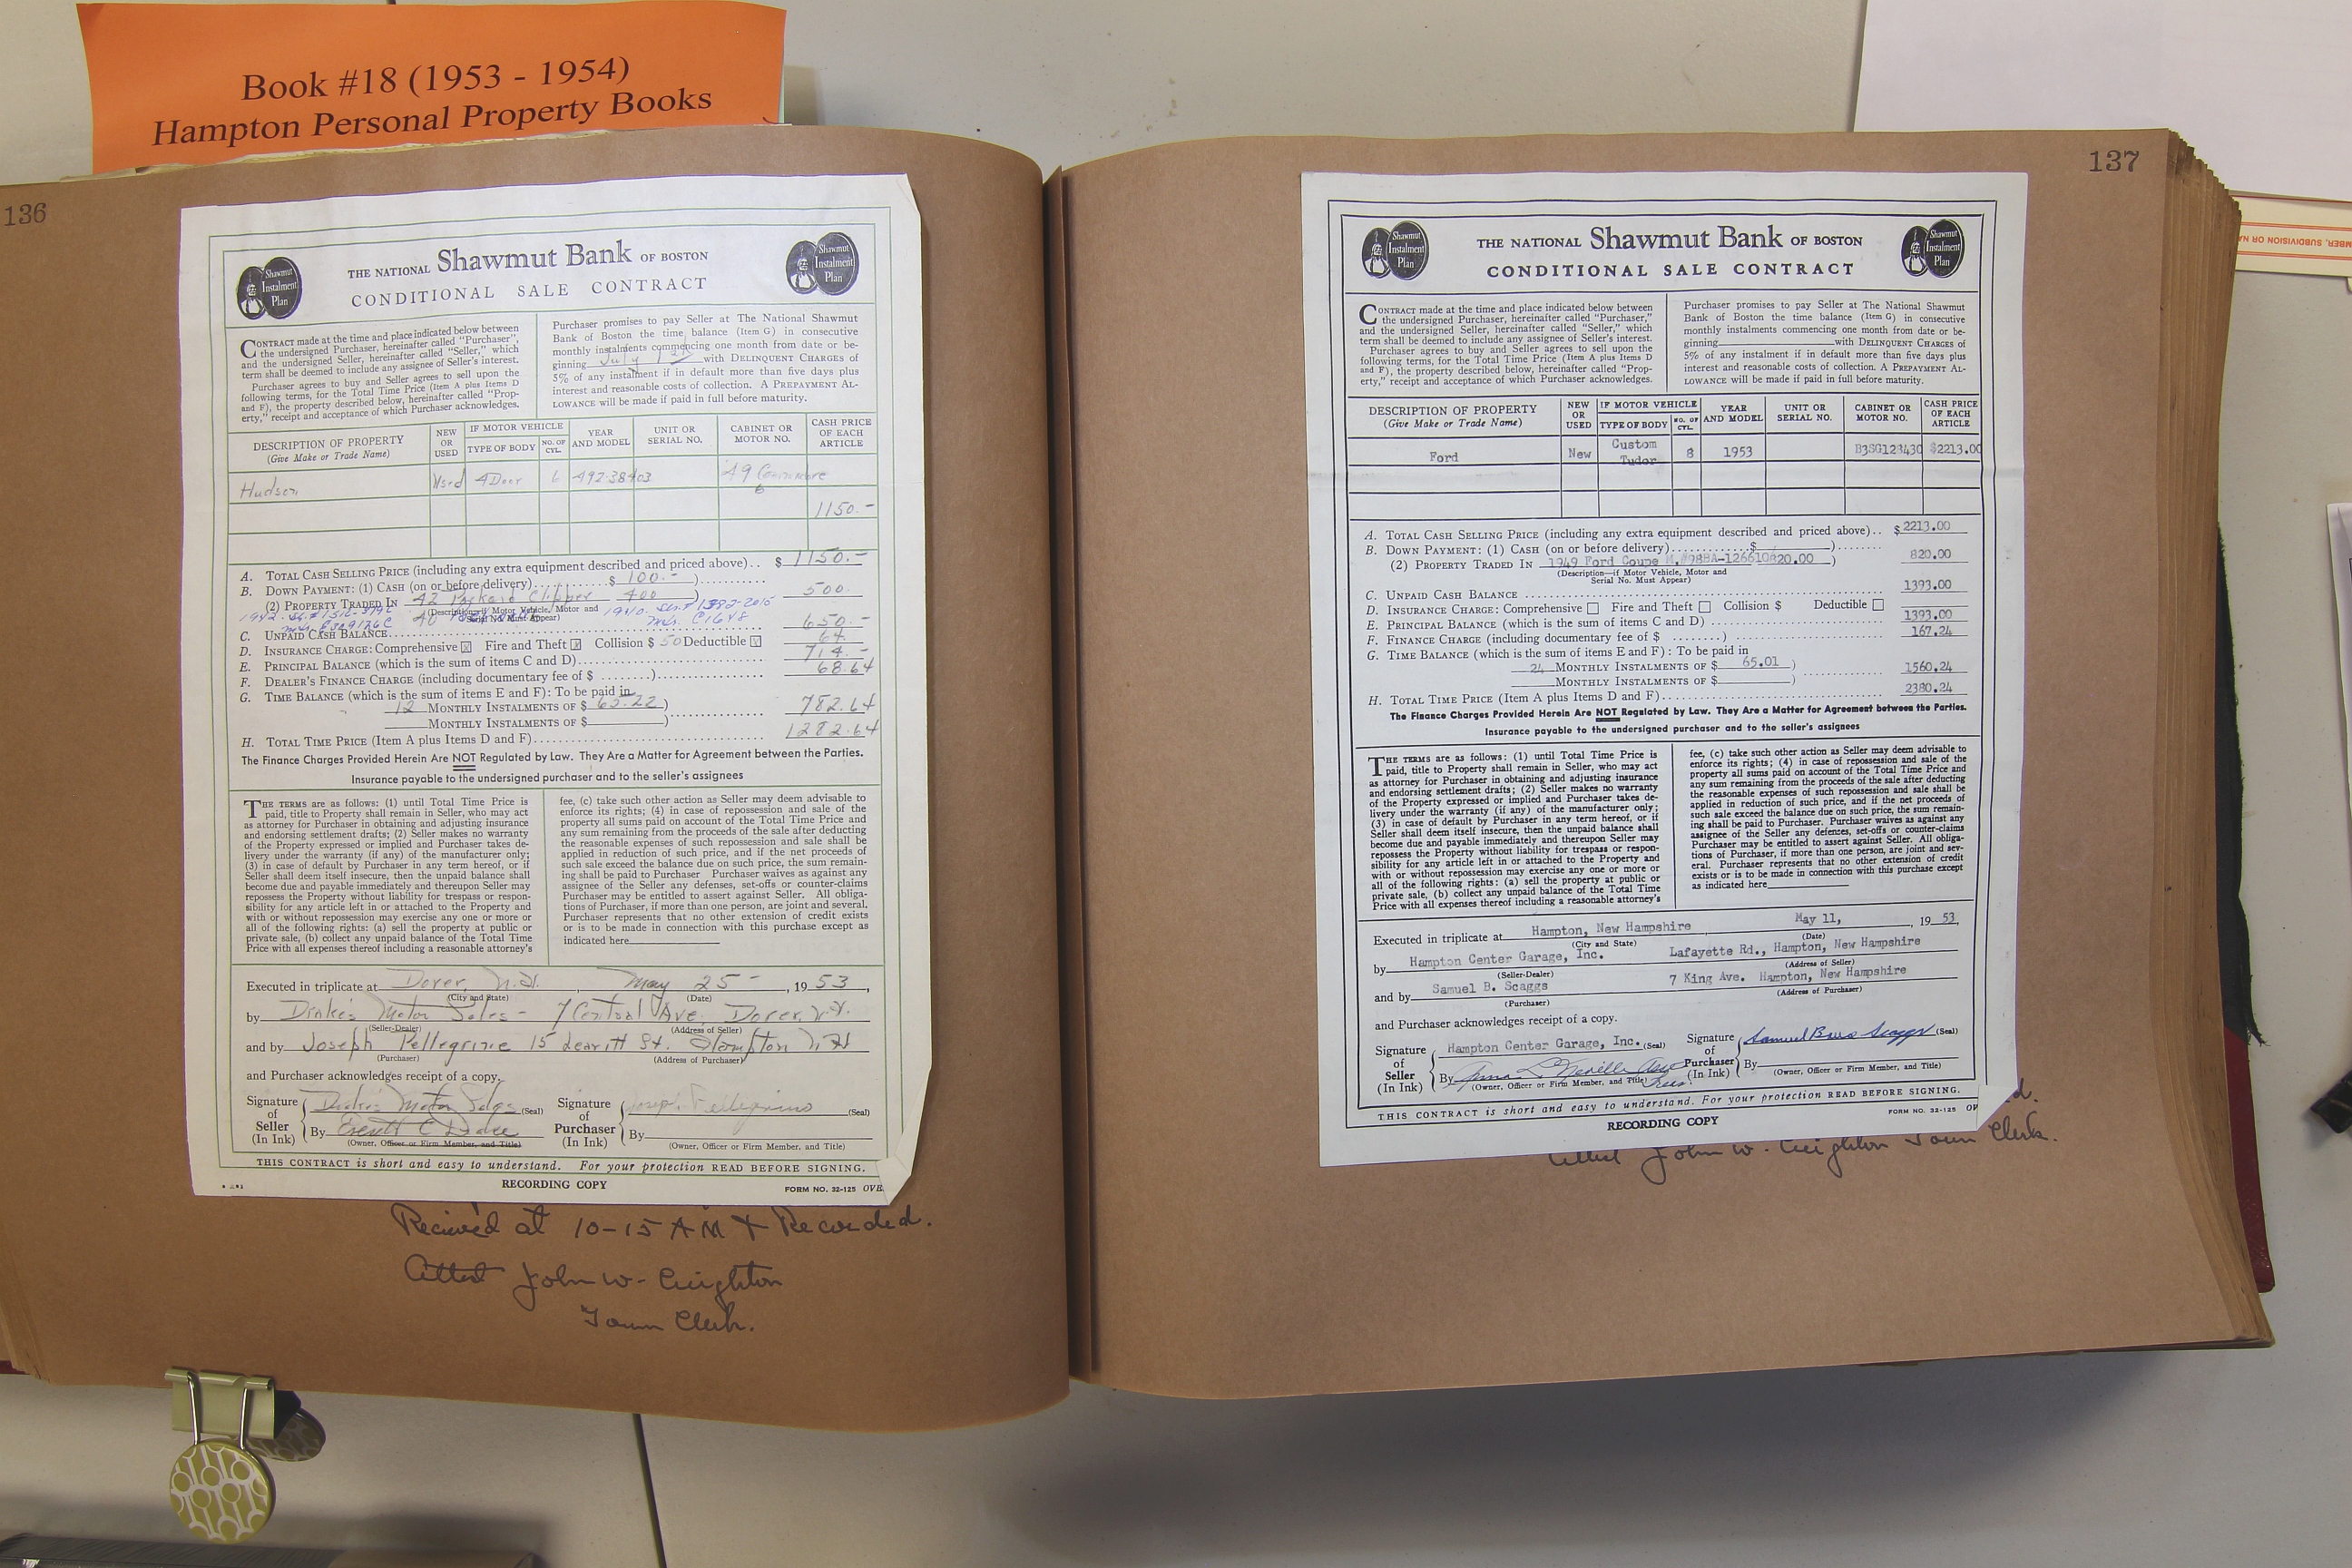 Book #18 (1953 - 1954)
Hampton Personal Property Books
136
Shawmut
Instalment
Plan
THE NATIONAL Shawmut Bank OF BOSTON
CONDITIONAL SALE CONTRACT
Shawmut
Instalment
Plan
CONTRACT made at the time and place indicated below between
the undersigned Purchaser, hereinafter called "Purchaser,"
and the undersigned Seller, hereinafter called "Seller," which
term shall be deemed to include any assignee of Seller's interest.
Purchaser agrees to buy and Seller agrees to sell upon the
following terms, for the Total Time Price (Item A plus Items D
and F), the property described below, hereinafter called "Prop-
erty," receipt and acceptance of which Purchaser acknowledges.
Purchaser promises to pay Seller at The National Shawmut
Bank of Boston the time balance (Item G) in consecutive
monthly instalments commencing one month from date or be-
ginning July 1st with DELINQUENT CHARGES of
5% of any instalment if in default more than five days plus
interest and reasonable costs of collection. A PREPAYMENT AL-
LOWANCE will be made if paid in full before maturity.
DESCRIPTION OF PROPERTY
(Give Make or Trade Name)
NEW OR USED
IF MOTOR VEHICLE
TYPE OF BODY
NO. OF CYL.
YEAR AND MODEL
UNIT OR SERIAL NO.
CABINET OR MOTOR NO.
CASH PRICE OF EACH ARTICLE
Hudson Used 4Door 6 492-38403 49 Commodore
6
1150.-
A. TOTAL CASH SELLING PRICE (including any extra equipment described and priced above).. $ 1150.-
B. DOWN PAYMENT: (1) CASH (on or before delivery).......... $ 100.- )..........
(2) PROPERTY TRADED IN 42 Packard Clipper 400 ) 500.
(Description—if Motor Vehicle, Motor and
Serial No. Must Appear)
C. UNPAID CASH BALANCE.......... 650.-
D. INSURANCE CHARGE: Comprehensive ☒ Fire and Theft ☒ Collision $ 50 Deductible ☒ 64.
E. PRINCIPAL BALANCE (which is the sum of items C and D).......... 714.-
F. DEALER'S FINANCE CHARGE (including documentary fee of $ ........).......... 68.64
G. TIME BALANCE (which is the sum of items E and F): To be paid in
12 MONTHLY INSTALMENTS OF $ 65.22 ) 782.64
MONTHLY INSTALMENTS OF $ )..........
H. TOTAL TIME PRICE (Item A plus Items D and F).......... 1282.64
The Finance Charges Provided Herein Are NOT Regulated by Law. They Are a Matter for Agreement between the Parties.
Insurance payable to the undersigned purchaser and to the seller's assignees
THE TERMS are as follows: (1) until Total Time Price is
paid, title to Property shall remain in Seller, who may act
as attorney for Purchaser in obtaining and adjusting insurance
and endorsing settlement drafts; (2) Seller makes no warranty
of the Property expressed or implied and Purchaser takes de-
livery under the warranty (if any) of the manufacturer only;
(3) in case of default by Purchaser in any term hereof, or if
Seller shall deem itself insecure, then the unpaid balance shall
become due and payable immediately and thereupon Seller may
repossess the Property without liability for trespass or respon-
sibility for any article left in or attached to the Property and
with or without repossession may exercise any one or more or
all of the following rights: (a) sell the property at public or
private sale, (b) collect any unpaid balance of the Total Time
Price with all expenses thereof including a reasonable attorney's
fee, (c) take such other action as Seller may deem advisable to
enforce its rights; (4) in case of repossession and sale of the
property all sums paid on account of the Total Time Price and
any sum remaining from the proceeds of the sale after deducting
the reasonable expenses of such repossession and sale shall be
applied in reduction of such price, and if the net proceeds of
such sale exceed the balance due on such price, the sum remain-
ing shall be paid to Purchaser Purchaser waives as against any
assignee of the Seller any defenses, set-offs or counter-claims
Purchaser may be entitled to assert against Seller. All obliga-
tions of Purchaser, if more than one person, are joint and several.
Purchaser represents that no other extension of credit exists
or is to be made in connection with this purchase except as
indicated here
Executed in triplicate at Dover, N.H. , May 25 - , 19 53 ,
(City and State) (Date)
by Drake's Motor Sales - 7 Central Ave. Dover, N.H.
(Seller-Dealer) (Address of Seller)
and by Joseph Pellegrine 15 Leavitt St. Hampton N.H
(Purchaser) (Address of Purchaser)
and Purchaser acknowledges receipt of a copy.
Signature of Seller (In Ink) Drake's Motor Sales (Seal)
By Everett C Drake
(Owner, Officer or Firm Member, and Title)
Signature of Purchaser (In Ink) Joseph Pellegrino (Seal)
By
(Owner, Officer or Firm Member, and Title)
THIS CONTRACT is short and easy to understand. For your protection READ BEFORE SIGNING.
RECORDING COPY
FORM NO. 32-125 OVE
Recieved at 10-15 AM & Recorded.
Attest John W. Creighton
Town Clerk.
137
Shawmut
Instalment
Plan
THE NATIONAL Shawmut Bank OF BOSTON
CONDITIONAL SALE CONTRACT
Shawmut
Instalment
Plan
CONTRACT made at the time and place indicated below between
the undersigned Purchaser, hereinafter called "Purchaser,"
and the undersigned Seller, hereinafter called "Seller," which
term shall be deemed to include any assignee of Seller's interest.
Purchaser agrees to buy and Seller agrees to sell upon the
following terms, for the Total Time Price (Item A plus Items D
and F), the property described below, hereinafter called "Prop-
erty," receipt and acceptance of which Purchaser acknowledges.
Purchaser promises to pay Seller at The National Shawmut
Bank of Boston the time balance (Item G) in consecutive
monthly instalments commencing one month from date or be-
ginning with DELINQUENT CHARGES of
5% of any instalment if in default more than five days plus
interest and reasonable costs of collection. A PREPAYMENT AL-
LOWANCE will be made if paid in full before maturity.
DESCRIPTION OF PROPERTY
(Give Make or Trade Name)
NEW OR USED
IF MOTOR VEHICLE
TYPE OF BODY
NO. OF CYL.
YEAR AND MODEL
UNIT OR SERIAL NO.
CABINET OR MOTOR NO.
CASH PRICE OF EACH ARTICLE
Ford New Custom Tudor 8 1953 B3SG123430 $2213.00
A. TOTAL CASH SELLING PRICE (including any extra equipment described and priced above).. $ 2213.00
B. DOWN PAYMENT: (1) CASH (on or before delivery)..........$ )..........
(2) PROPERTY TRADED IN 1949 Ford Coupe M.#98BA-126610 820.00 ) 820.00
(Description—if Motor Vehicle, Motor and
Serial No. Must Appear)
C. UNPAID CASH BALANCE .......... 1393.00
D. INSURANCE CHARGE: Comprehensive ☐ Fire and Theft ☐ Collision $ Deductible ☐
E. PRINCIPAL BALANCE (which is the sum of items C and D).......... 1393.00
F. FINANCE CHARGE (including documentary fee of $ ........) .......... 167.24
G. TIME BALANCE (which is the sum of items E and F): To be paid in
24 MONTHLY INSTALMENTS OF $ 65.01 ) 1560.24
MONTHLY INSTALMENTS OF $ )
H. TOTAL TIME PRICE (Item A plus Items D and F).......... 2380.24
The Finance Charges Provided Herein Are NOT Regulated by Law. They Are a Matter for Agreement between the Parties.
Insurance payable to the undersigned purchaser and to the seller's assignees
THE TERMS are as follows: (1) until Total Time Price is
paid, title to Property shall remain in Seller, who may act
as attorney for Purchaser in obtaining and adjusting insurance
and endorsing settlement drafts; (2) Seller makes no warranty
of the Property expressed or implied and Purchaser takes de-
livery under the warranty (if any) of the manufacturer only;
(3) in case of default by Purchaser in any term hereof, or if
Seller shall deem itself insecure, then the unpaid balance shall
become due and payable immediately and thereupon Seller may
repossess the Property without liability for trespass or respon-
sibility for any article left in or attached to the Property and
with or without repossession may exercise any one or more or
all of the following rights: (a) sell the property at public or
private sale, (b) collect any unpaid balance of the Total Time
Price with all expenses thereof including a reasonable attorney's
fee, (c) take such other action as Seller may deem advisable to
enforce its rights; (4) in case of repossession and sale of the
property all sums paid on account of the Total Time Price and
any sum remaining from the proceeds of the sale after deducting
the reasonable expenses of such repossession and sale shall be
applied in reduction of such price, and if the net proceeds of
such sale exceed the balance due on such price, the sum remain-
ing shall be paid to Purchaser. Purchaser waives as against any
assignee of the Seller any defenses, set-offs or counter-claims
Purchaser may be entitled to assert against Seller. All obliga-
tions of Purchaser, if more than one person, are joint and sev-
eral. Purchaser represents that no other extension of credit
exists or is to be made in connection with this purchase except
as indicated here
Executed in triplicate at Hampton, New Hampshire , May 11, 19 53,
(City and State) (Date)
by Hampton Center Garage, Inc. Lafayette Rd., Hampton, New Hampshire
(Seller-Dealer) (Address of Seller)
and by Samuel B. Scaggs 7 King Ave. Hampton, New Hampshire
(Purchaser) (Address of Purchaser)
and Purchaser acknowledges receipt of a copy.
Signature of Seller (In Ink) Hampton Center Garage, Inc. (Seal)
By
(Owner, Officer or Firm Member, and Title)
Signature of Purchaser (In Ink) Samuel Scaggs (Seal)
By
(Owner, Officer or Firm Member, and Title)
THIS CONTRACT is short and easy to understand. For your protection READ BEFORE SIGNING.
RECORDING COPY
FORM NO. 32-125 OV
d.
Attest John W. Creighton Town Clerk.